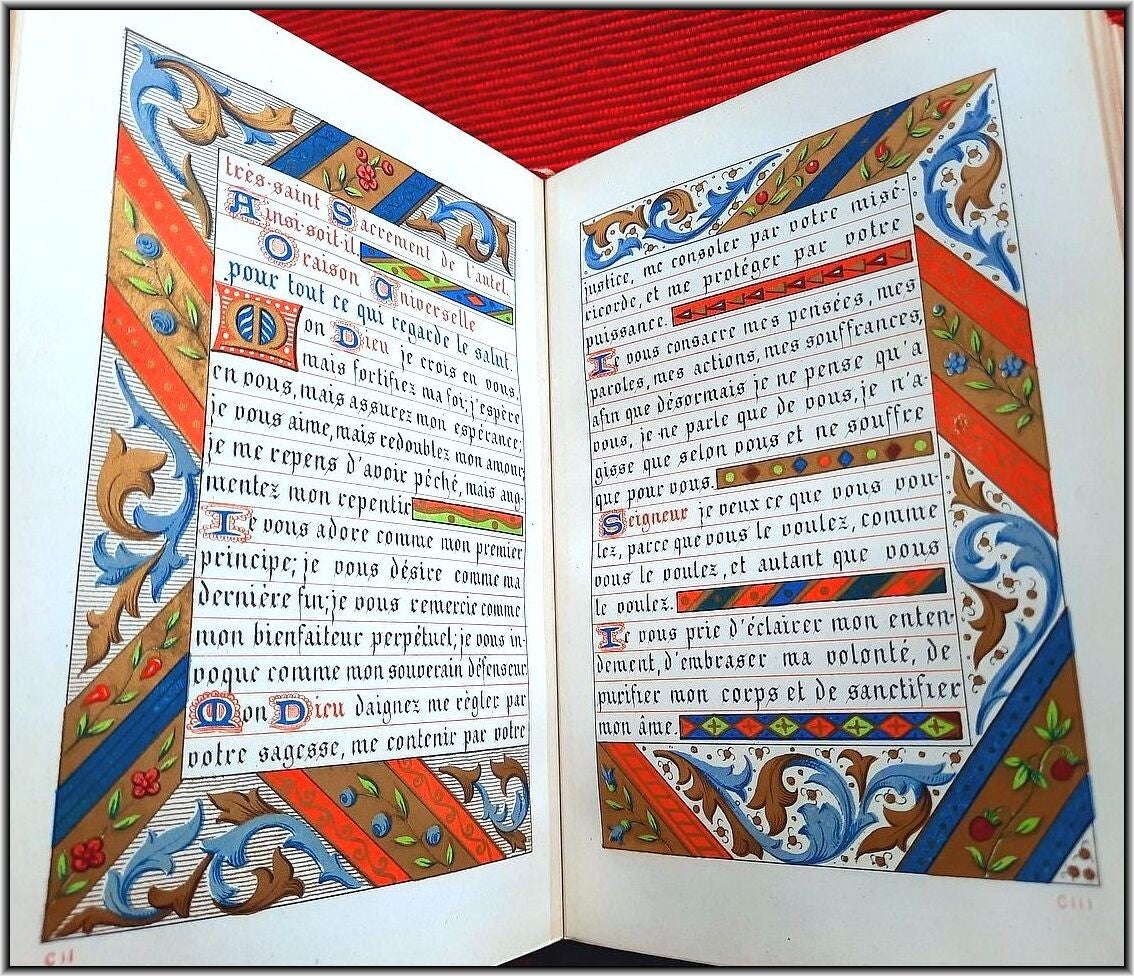 très-saint Sacrement de l'autel.
Ainsi-soit-il
Oraison Universelle
pour tout ce qui regarde le salut.
Mon Dieu je crois en vous,
mais fortifiez ma foi; j'espère
en vous, mais assurez mon espérance;
je vous aime, mais redoublez mon amour
je me repens d'avoir pêché, mais aug-
mentez mon repentir
Je vous adore comme mon premier
principe; je vous désire comme ma
dernière fin; je vous remercie comme
mon bienfaiteur perpétuel; je vous in-
voque comme mon souverain défenseur
Mon Dieu daignez me règler par
votre sagesse, me contenir par votre
CII
justice, me consoler par votre misé-
ricorde, et me protéger par votre
puissance.
Je vous consacre mes pensées, mes
paroles, mes actions, mes souffrances,
afin que désormais je ne pense qu'à
vous, je ne parle que de vous, je n'a-
gisse que selon vous et ne souffre
que pour vous.
Seigneur je veux ce que vous vou-
lez, parce que vous le voulez, comme
vous le voulez, et autant que vous
le voulez.
Je vous prie d'éclairer mon enten-
dement, d'embraser ma volonté, de
purifier mon corps et de sanctifier
mon âme.
CIII